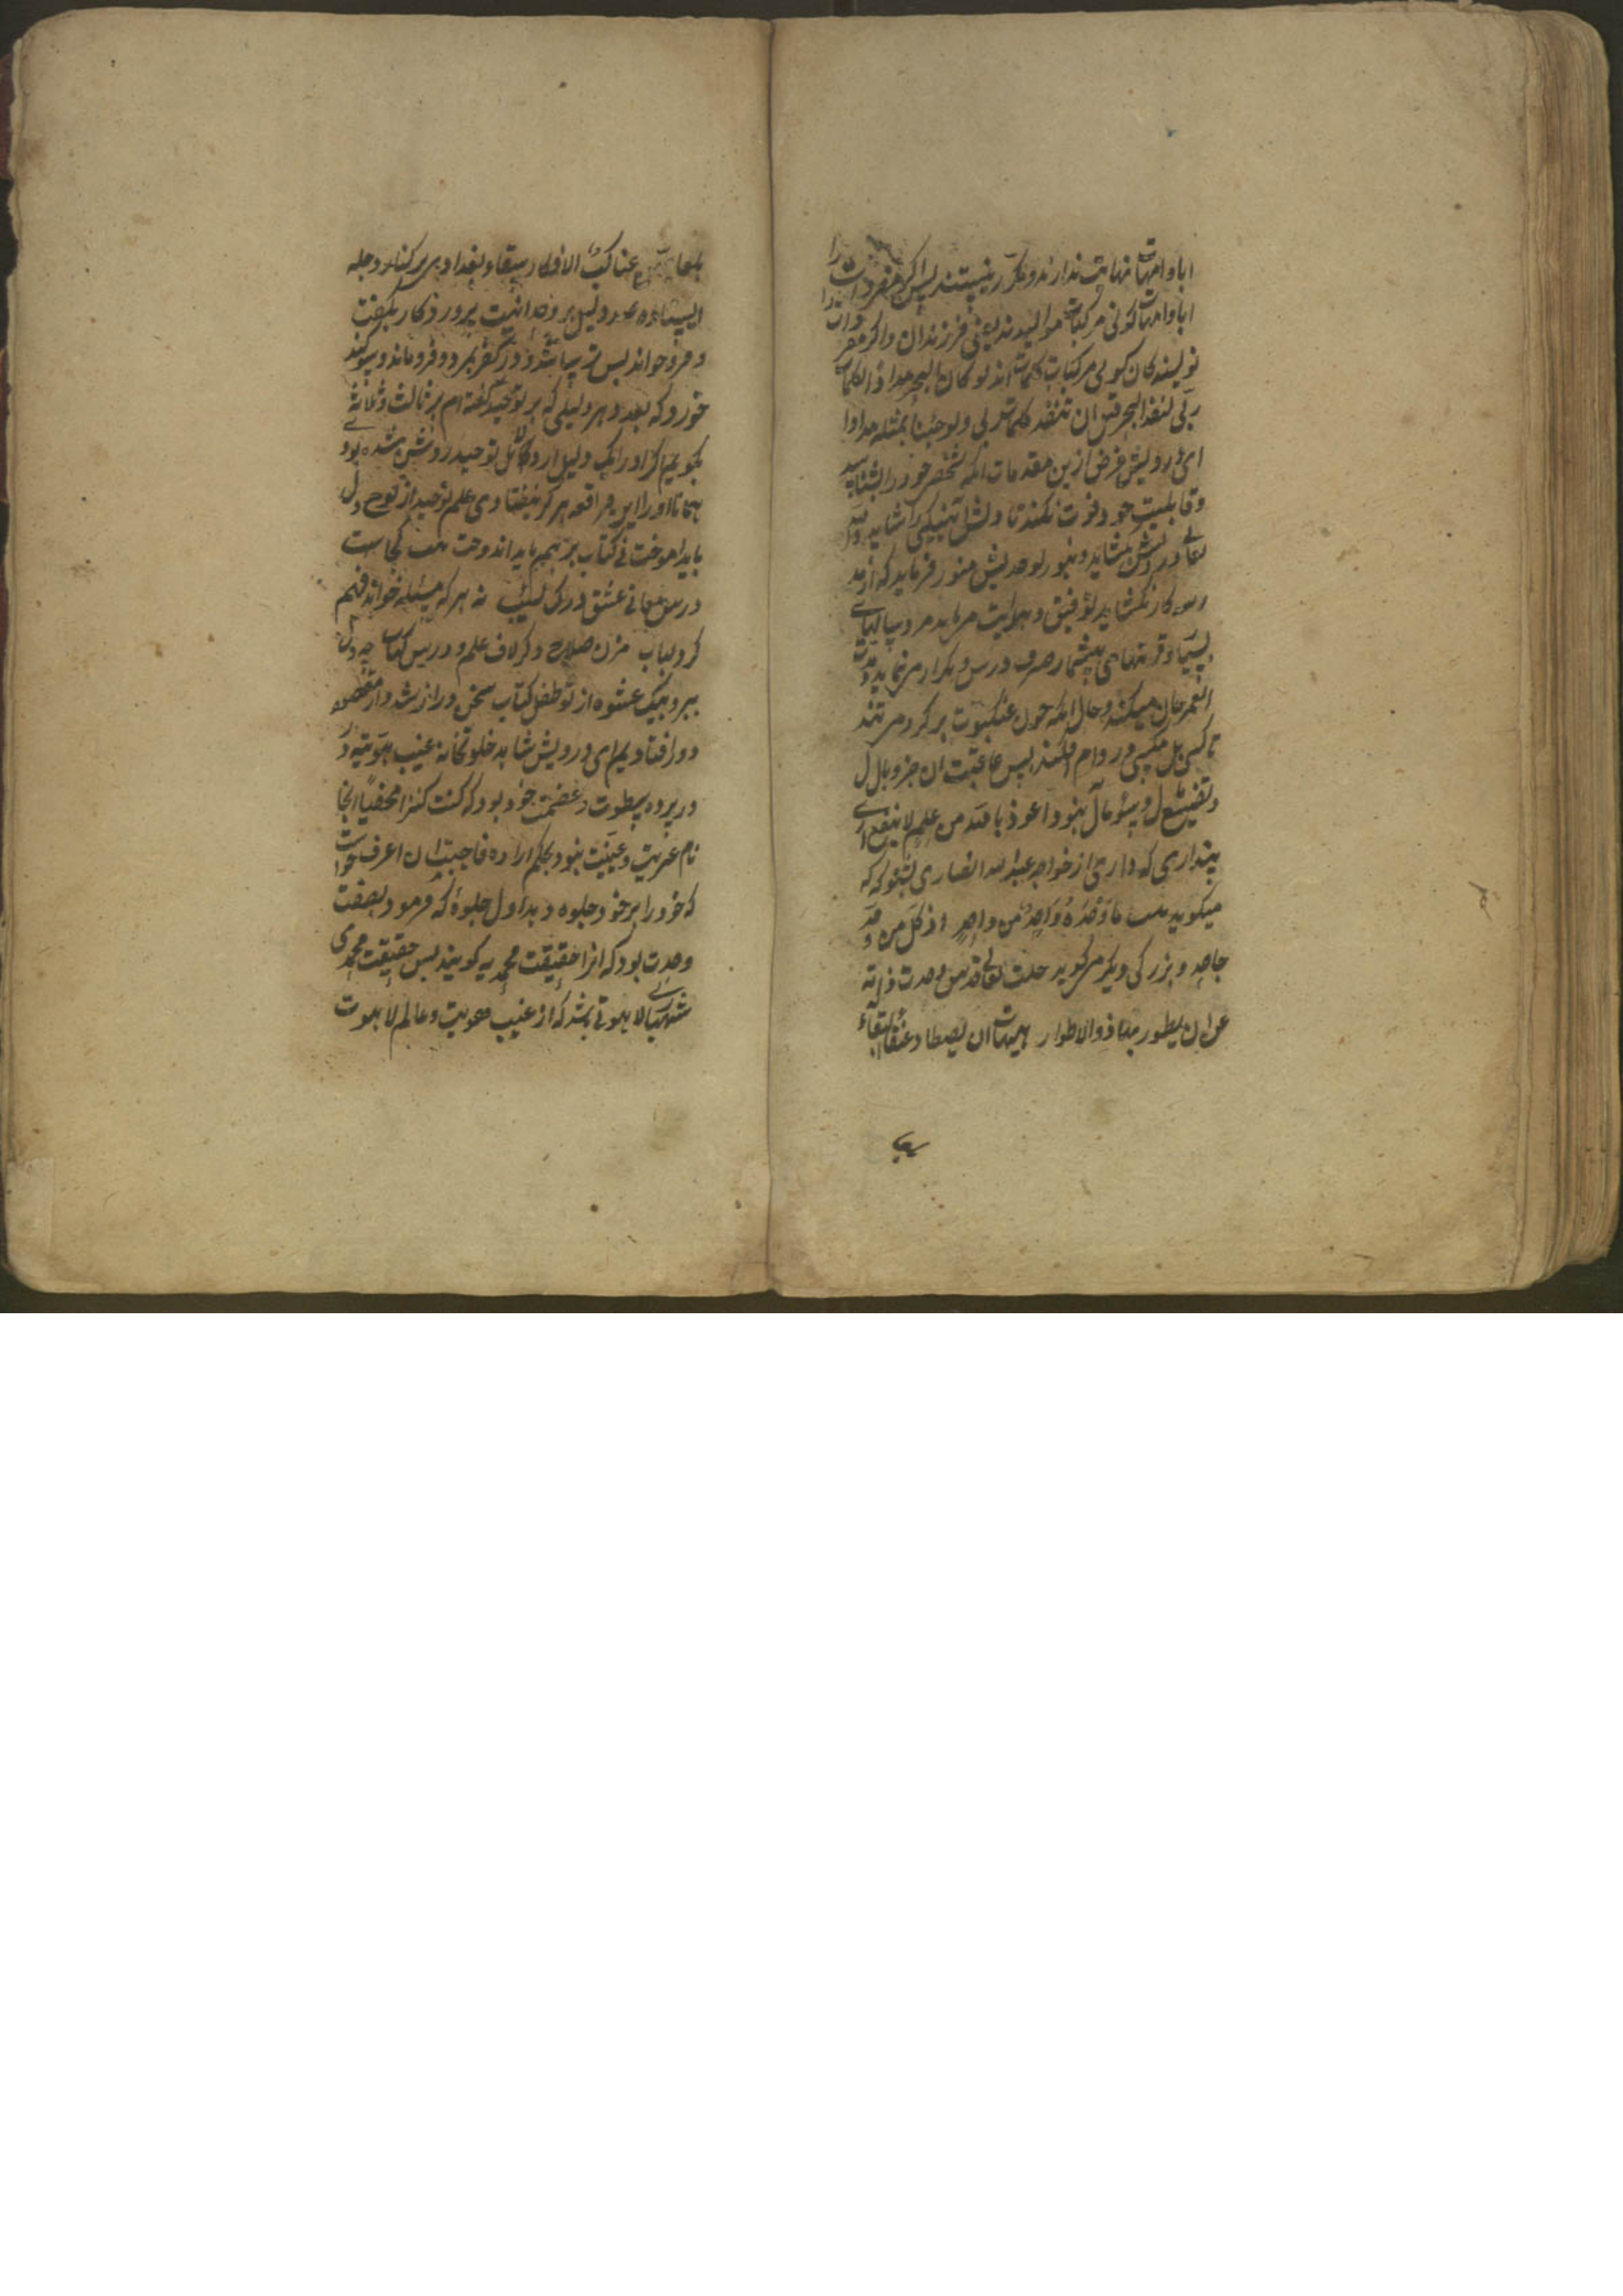 ابا و امهات نهایت ندارند و مکرر نیستند پس اگر مفردات را
ابا و امهات گوئی مرکبات موالیدند یعنی فرزندان و اگر مفردات را
نویسندگان گویی مرکبات کلمات اند لو کان البحر مدادا لکلمات
ربی لنفد البحر قبل ان تنفد کلمات ربی ولو جئنا بمثله مددا
ای درویش غرض ازین مقدمات انکه شخص خود را بشناسد
و قابلیت خود فوت نکند تا دلش به نیکی گشاید و الله
تعالی در دلش بگشاید و بنور توحیدش منور فرماید که از
کار نگشاید توفیق و هدایت مر باید مرد سالها
بسیار و قرنهای بیشمار صرف درس و تکرار می نماید و
میکند و حال انکه چون عنکبوت بر گرد می تند
تا کسی بل مگسی در دام افکند پس عاقبت ان جز وبال
و سوء مآل نبود اعوذ بالله من علم لا ینفع ای
پنداری که داری از خواجه عبدالله انصاری بشنو که
میگوید ما وحد واحد من واحد اذ کل من وحد
جاحد و بزرگی دیگر میگوید جلت تعالی قدس وحدت ذاته
عن ان یطور بها ذوالاطوار هیهات ان یصطاد عنقاء البقاء
بلعابهن عناکب الافکار سقاء بغدادی بر کنار دجله
ایستاده صد دلیل بر وحدانیت پروردگار بگفت
و فرو خواند پس ترسا شد و در کفر بمرد و فرو ماند و سوگند
خورد که بعد هر دلیلی که بر توحید گفته ام بر ثالث و ثلاثه
بگویم اگر او را یک دلیل از دلائل توحید روشن شده بود
همانا او را این واقعه هرگز نیفتادی علم توحید از لوح دل
باید اموخت نی کتاب بر هم باید اندوخت کجاست
درس معانی عشق و درک لبیب نه هر که مسئله خواند فهم
کرد لباب مزن صلاح دگر لاف علم و درس کتاب چو دل
ببرد بیک عشوه از تو طفل کتاب سخن دراز شد و از مقصود
دور افتادیم ای درویش شاهد خلوتخانه غیب هویت در
در پرده سطوت و عظمت خود بود که کنت کنزا مخفیا انجا
نام غیریت و عینیت نبود بحکم اراده فاحببت ان اعرف خواست
که خود را بر خود جلوه دهد اول جلوه که فرمود بصفت
وحدت بود که انرا حقیقت محمدیه گویند پس حقیقت محمدی
شهباز لاهوتی باشد که از غیب هویت و عالم لاهوت